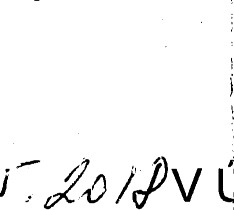 . 2018 V Ú